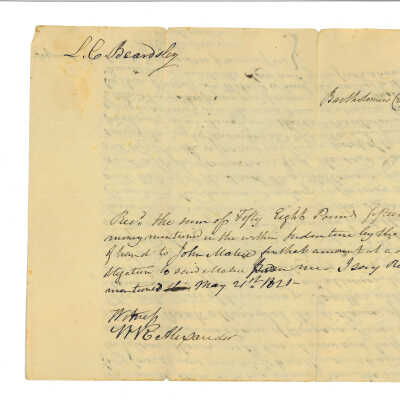 L. C. Beardsley
Bartholomew
Rec'd the sum of Fifty Eight Pounds fifteen
money mentioned in the within Indenture by the
of hand to John Maher for that amount at a
to said Maher me I say Re
mentioned May 21st 1821 -
Witness
Alexander